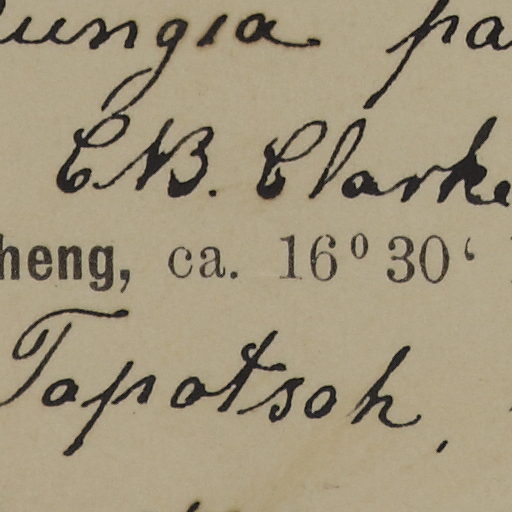 ungia pa
C.B. Clarke
heng, ca. 16° 30‘
Tapotsch,